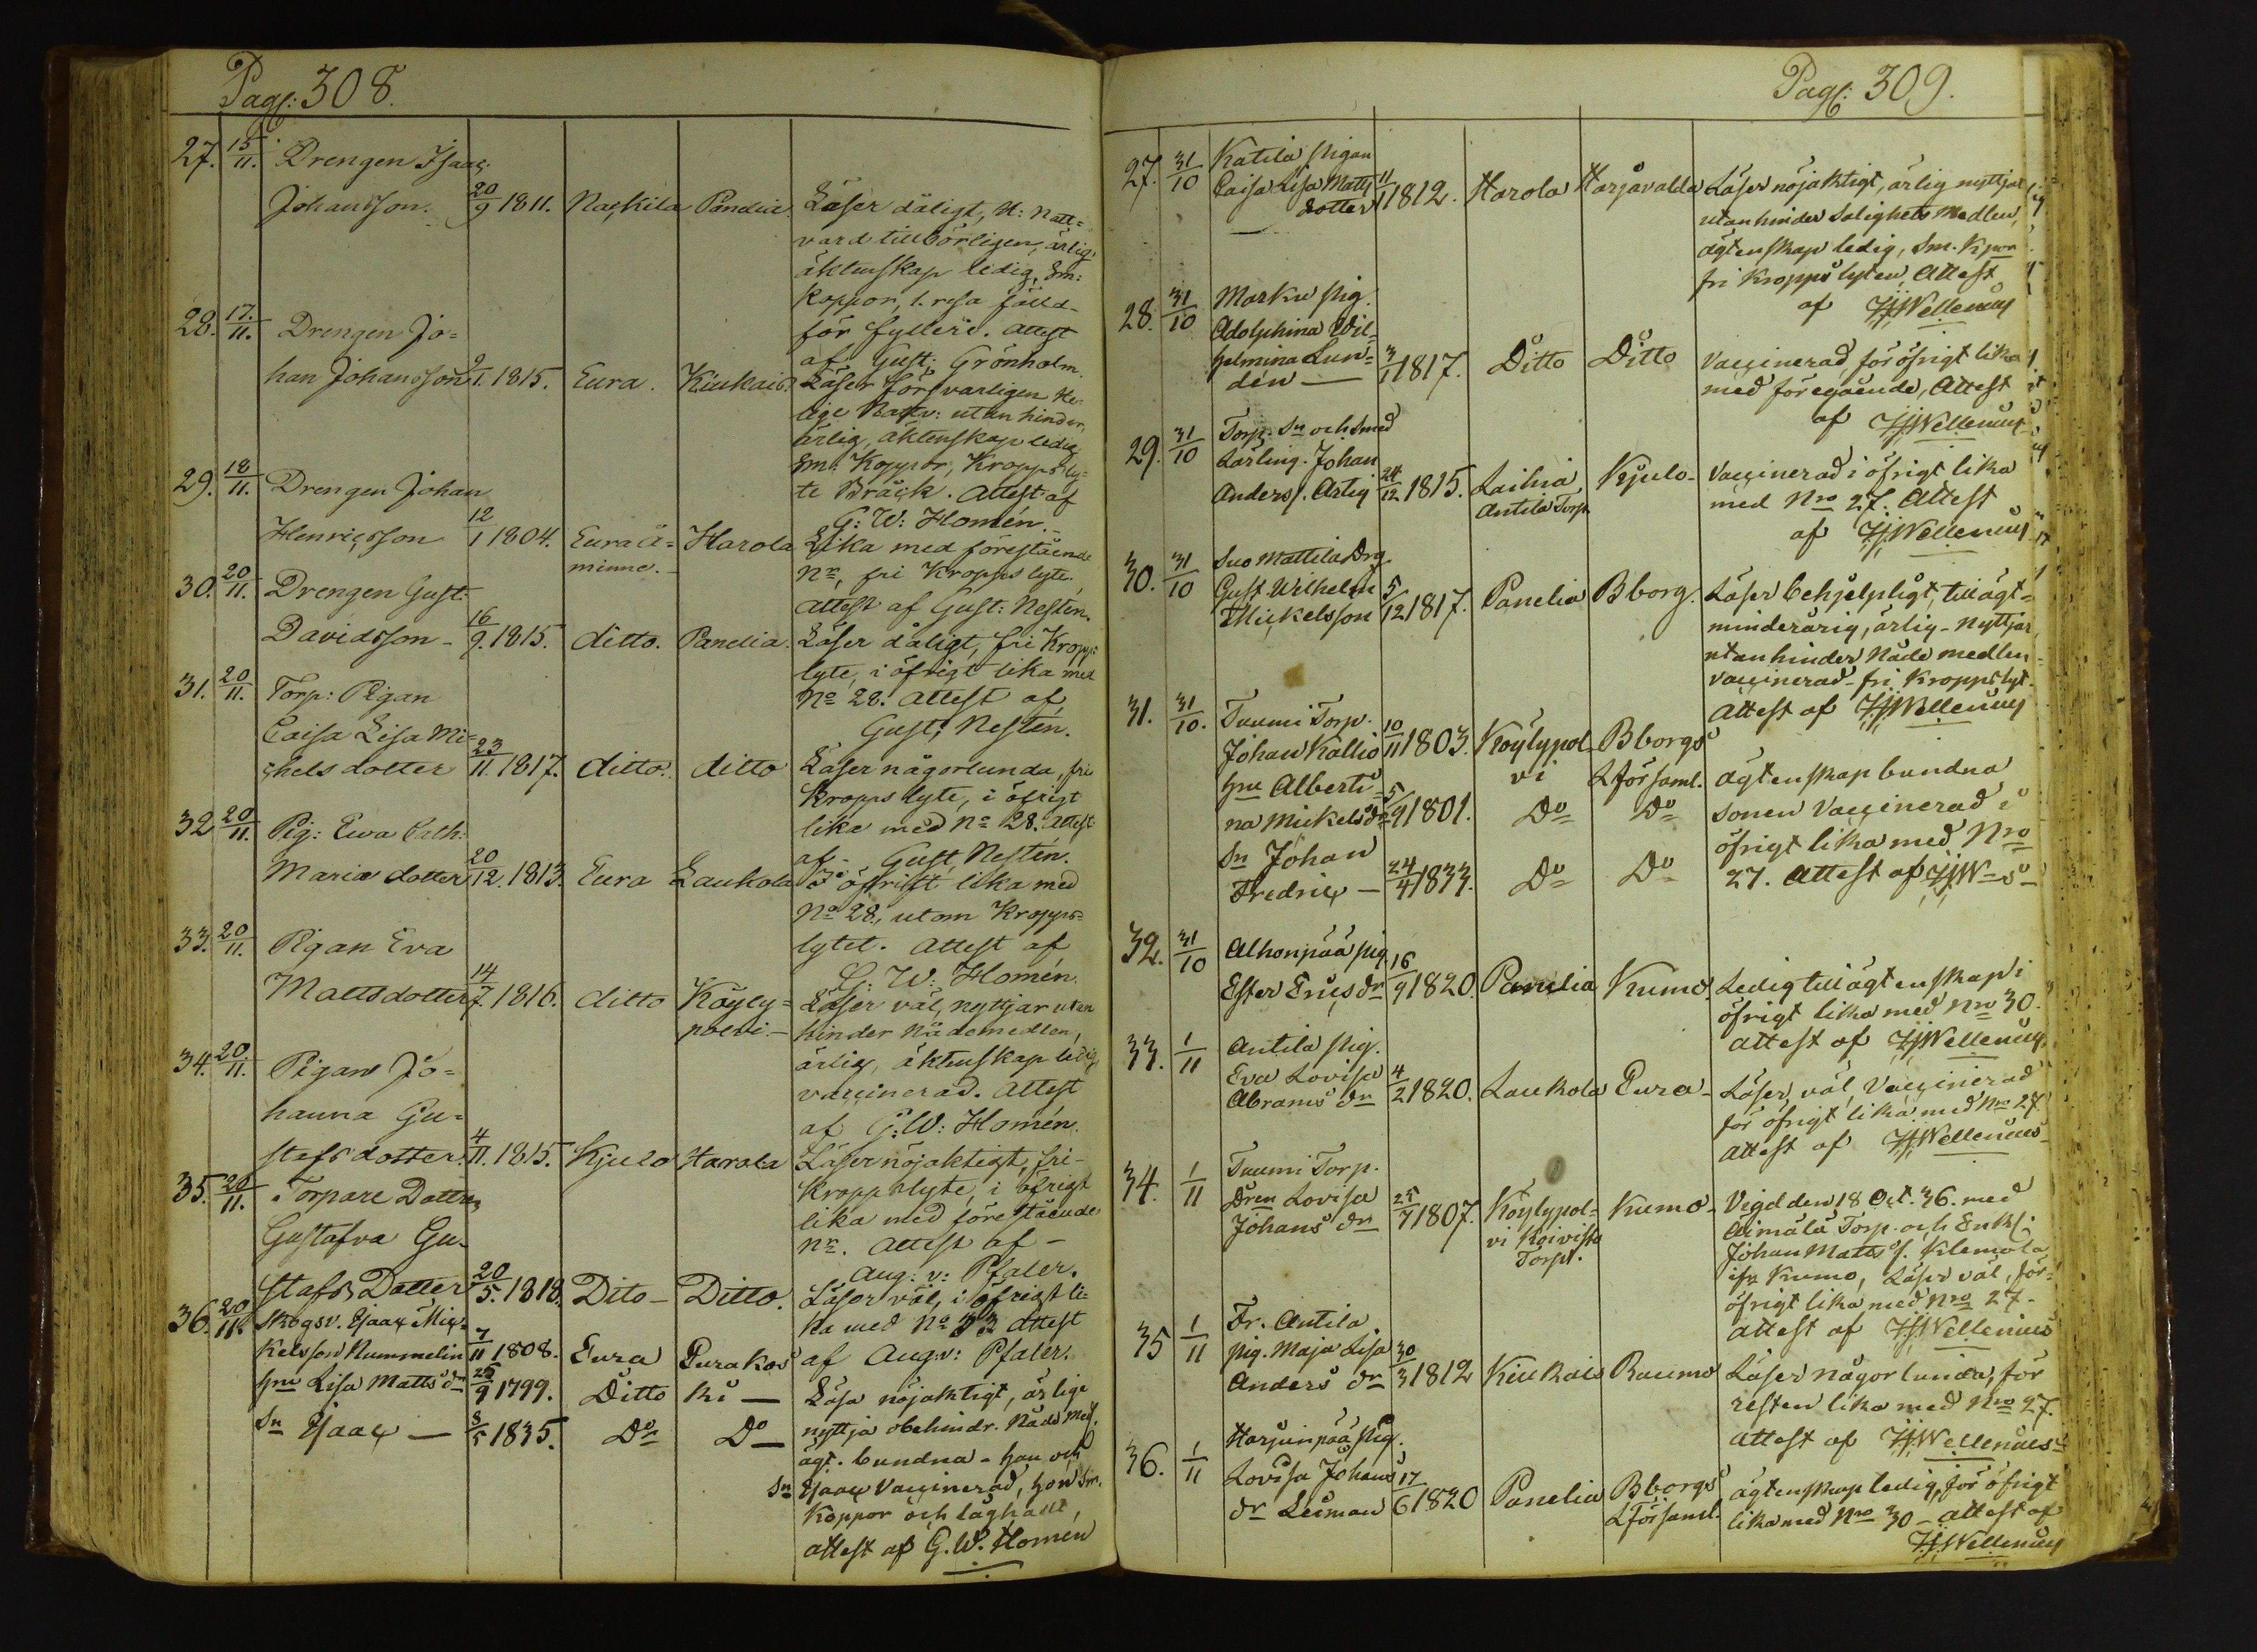 Pag: 308.
27. 15/11. Drengen Isaac
Johansson. 20/9 1811. Naskila Panelia. Läser dåligt, H: Natt=
vard tillbörligen, ärlig,
äktenskap ledig, Sm:
Koppor, 1. resa fälld
för fylleri. Attest
af Gust: Grönholm.
28. 17./11. Drengen Jo=
han Johansson 9/1. 1815. Eura. Kiukais. Läser försvarligen He=
lige Nattv: utan hinder,
ärlig, äktenskap ledig
Sm: Koppor, Kropps ly=
te Bråck. Attest af
G: W: Homén.
29. 18/11. Drengen Johan
Henricsson 12/1 1804. Eura å= Harola Lika med förestående
minne. Nr, fri Kropps lyte,
Attest af Gust: Nestén.
30. 20/11. Drengen Gust:
Davidsson - 16/9. 1815. ditto. Panelia. Läser dåligt, fri Kropps
lyte, i öfrigt lika med
No 28. Attest af
Gust: Nestén.
31. 20/11. Torp: Pigan
Caisa Lisa Mi=
chels dotter 23/11. 1817. ditto. ditto Läser någorlunda, fri
Kropps lyte, i öfrigt
like med No 28. Attest
af Gust Nestén.
32 20/11. Pig: Ewa Cath:
Maria dotter 20/12. 1813. Eura Laukola I öfrigt lika med
No 28., utom Kropps=
lytet. Attest af
G: W: Homén.
33. 20/11. Pigan Eva
Mattsdotter 14/7. 1816. ditto Köyly= Läser väl, nyttjar utan
polvi. - hinder Nådemedlen,
ärlig, äktenskap ledig,
vaccinerad. Attest
af G: W: Homén.
34. 20/11. Pigan Jo=
hanna Gu=
stafs dotter. 4/11. 1815. Kjulo Harola Läser nöjaktigt, fri
Kropps lyte, i öfrigt
lika med förestående
nr. Attest af -
Aug: v: Pfaler.
35. 20/11. Torpare Dottren
Gustafva Gu=
stafs Dotter 20/5. 1818. Dito - Ditto. Läser väl, i öfrigt li=
ka med No 33 Attest
af Aug: v: Pfaler.
36. 20/11. Skogsv. Isaac Mic=
kelsson Nummelin 7/11 1808. Eura Eurakos
hu Lisa Matts dr 25/9 1799. Ditto ki — Läsa nöjaktigt, ärlige
Sn Isaac — 3/5 1835. Do Do nyttja obehindr. Nåde Med.
ägt. bundna - han och
Sn Isaac Vaccinerad, hon Sm.
Koppor och låghalt,
attest af G. W. Homén
Pag: 309.
27. 31/10 Katila pigan
Caisa Lisa Matts 11/1 1812. Harola Harjavalda Läser nöjaktigt, ärlig nyttjar
dotter utan hinder Salighets Medlen,
ägtenskap ledig, Sm. Kpor
fri Kropps lyten, Attest
af HJWellenius
28. 31/10 Marku pig.
Adolphina Wil=
helmina Lun=
dén — 3/1 1817. Ditto Ditto Vaccinerad, för öfrigt lika
med föregående, Attest
af HJWellenius
29. 31/10 Torp. Sn och Smed
Lärling. Johan
Anders s. Artig 24/12 1815. Laihia Kjulo - Vaccinerad i öfrigt lika
Antila Torp. med Nro 27. Attest
af HJWellenius
30. 31/10 Suo Mattila Drg
Gust. Wilhelm
Mickelsson 5/12 1817. Panelia Bborg. Läser behjelpligt, till ägt=
minderårig, ärlig - Nyttjar
utan hinder Nåde medlen
vaccinerad - fri Kroppslyt.
Attest af HJWellenius
31. 31/10. Tuumi Torp.
Johan Kallio 10/11 1803. Köylypol= Bborgs
hu Alberti= vi Lförsaml. ägtenskap bundna
na Mickels dr 5/9 1801. Do Do Sonen Vaccinerad i
Sn Johan öfrigt lika med Nro
Fredric — 24/4 1833. Do Do 27. Attest af HJW-s
32. 31/10 Alhonpää pig.
Ester Erics dr 16/9 1820. Panelia Kumo Ledig till ägtenskap i
öfrigt lika med Nro 30.
attest af HJWellenius
33. 1/11 Antila pig.
Eva Lovisa
Abrams dr 4/2 1820. Laukola Eura - Läser väl, Vaccinerad
för öfrigt lika med Nro 27
Attest af HJWellenius
34. 1/11 Tuumi Torp.
Dren Lovisa
Johans dr 25/7 1807. Köylypol= Kumo - Vigd den 18 Oct. 36. med
vi Koivisto Torp. och Enkl:
Torp. Johan Matts s. Klemola
ifr. Kumo, Läser väl, för
öfrigt lika med Nro 27.
attest af HJWellenius
35 1/11 Fr. Antila
pig. Maja Lisa
Anders dr 30/3 1812 Kiukais Raumo Läser någorlunda, för
resten lika med Nro 27.
attest af HJWellenius
36. 1/11 Harjunpää pig.
Lovisa Johans
dr Leiman 17/6 1820 Panelia Bborgs ägtenskap ledig, för öfrigt
Lförsaml. lika med Nro 30 - attest af
HJWellenius